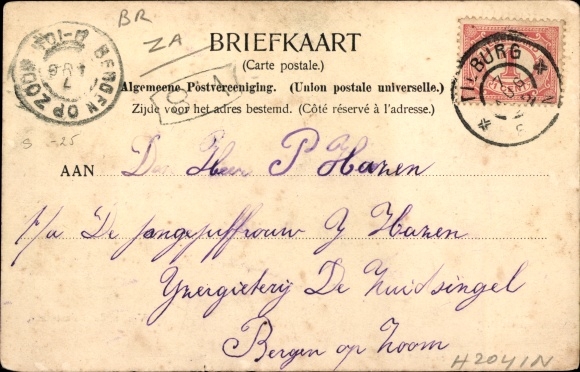 BR
ZA
BRIEFKAART
(Carte postale.)
Algemeene Postvereeniging. (Union postale universelle.)
Zijde voor het adres bestemd. (Côté réservé à l'adresse.)
BERGEN OP ZOOM
TILBURG
AAN Den Heer P Hazen
p/a De Jongejuffrouw J Hazen
Yzergieterij De Zuidsingel
Bergen op Zoom
H2041N